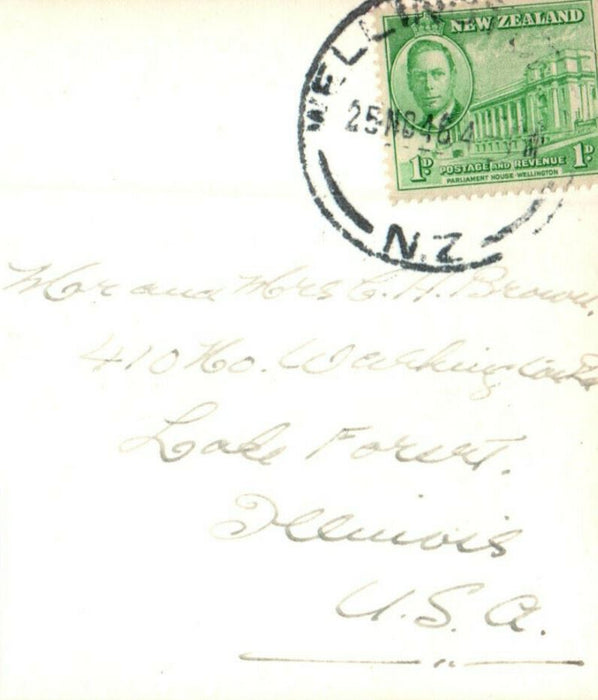 WELLIN
NEW ZEALAND
25 NO 46 4
1D POSTAGE AND REVENUE 1D
PARLIAMENT HOUSE-WELLINGTON
N.Z
Mr and Mrs C. H. Brown,
410 No. Washington
Lake Forest.
Illinois
U.S.A.